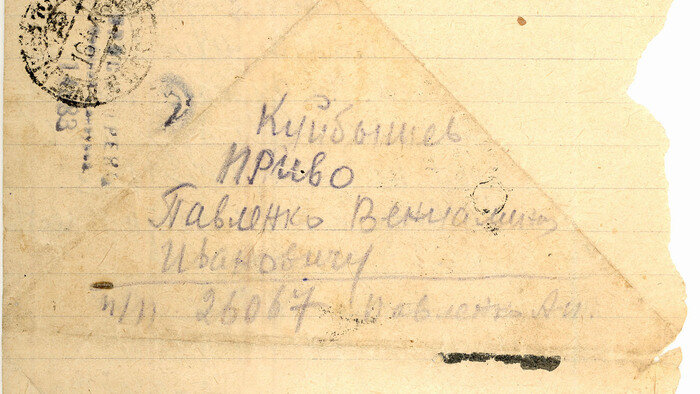 Куйбышев
ПРИВО
Павленко Вениамину
Ивановичу
п/п 26067 Павленко А.И.